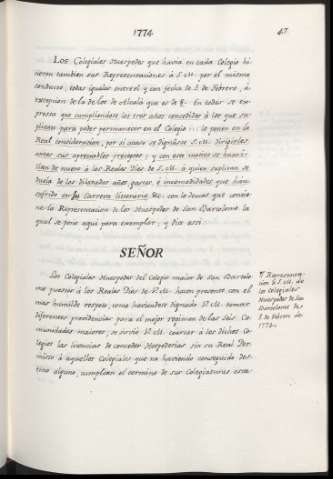 1774
47
Los Colegiales Huespedes que havia en cada Colegio hi
cieron tambien sus Representaciones à S.M. por el mismo
conducto, todas iguales
y con fecha de 5. de Febrero, à
excepcion de la de los de Alcalà que es de
En todas se ex-
presa que cumpliendose los tres años concedidos à los que su-
plican para poder permanecer en el Colegio
lo ponen en la
Real consideracion, por si acaso se dignasse S.M. dirigirles
antes sus apreciables preceptos; y con este motivo se
de nuevo à los Reales Pies de S.M. à quien suplican se
duela de los dilatados años, gastos, è incomodidades que han
sufrido en su Carrera literaria &c. con lo demas que consta
de la Representacion de los Huespedes de San Bartolomè la
qual se pone aqui para exemplar, y dice assi
SEÑOR
Los Colegiales Huespedes del Colegio maior de San Bartolo
mè puestos à los Reales Pies de V.M. hacen presente con el
mas humilde respeto, como haviendose dignado V.M. tomar
diferentes providencias para el mejor regimen de las seis Co-
munidades maiores, se sirviò V.M. coartar à los dichos Co-
legios las licencias de conceder Hospederias sin su Real Per-
misso à aquellos Colegiales que no haviendo conseguido des-
tino alguno, cumplian el termino de sus Colegiaturas esta-
¶ Representa-
cion à S.M. de
los Colegiales
Huespedes de San
Bartolomè de
5 de Febrero de
1774.